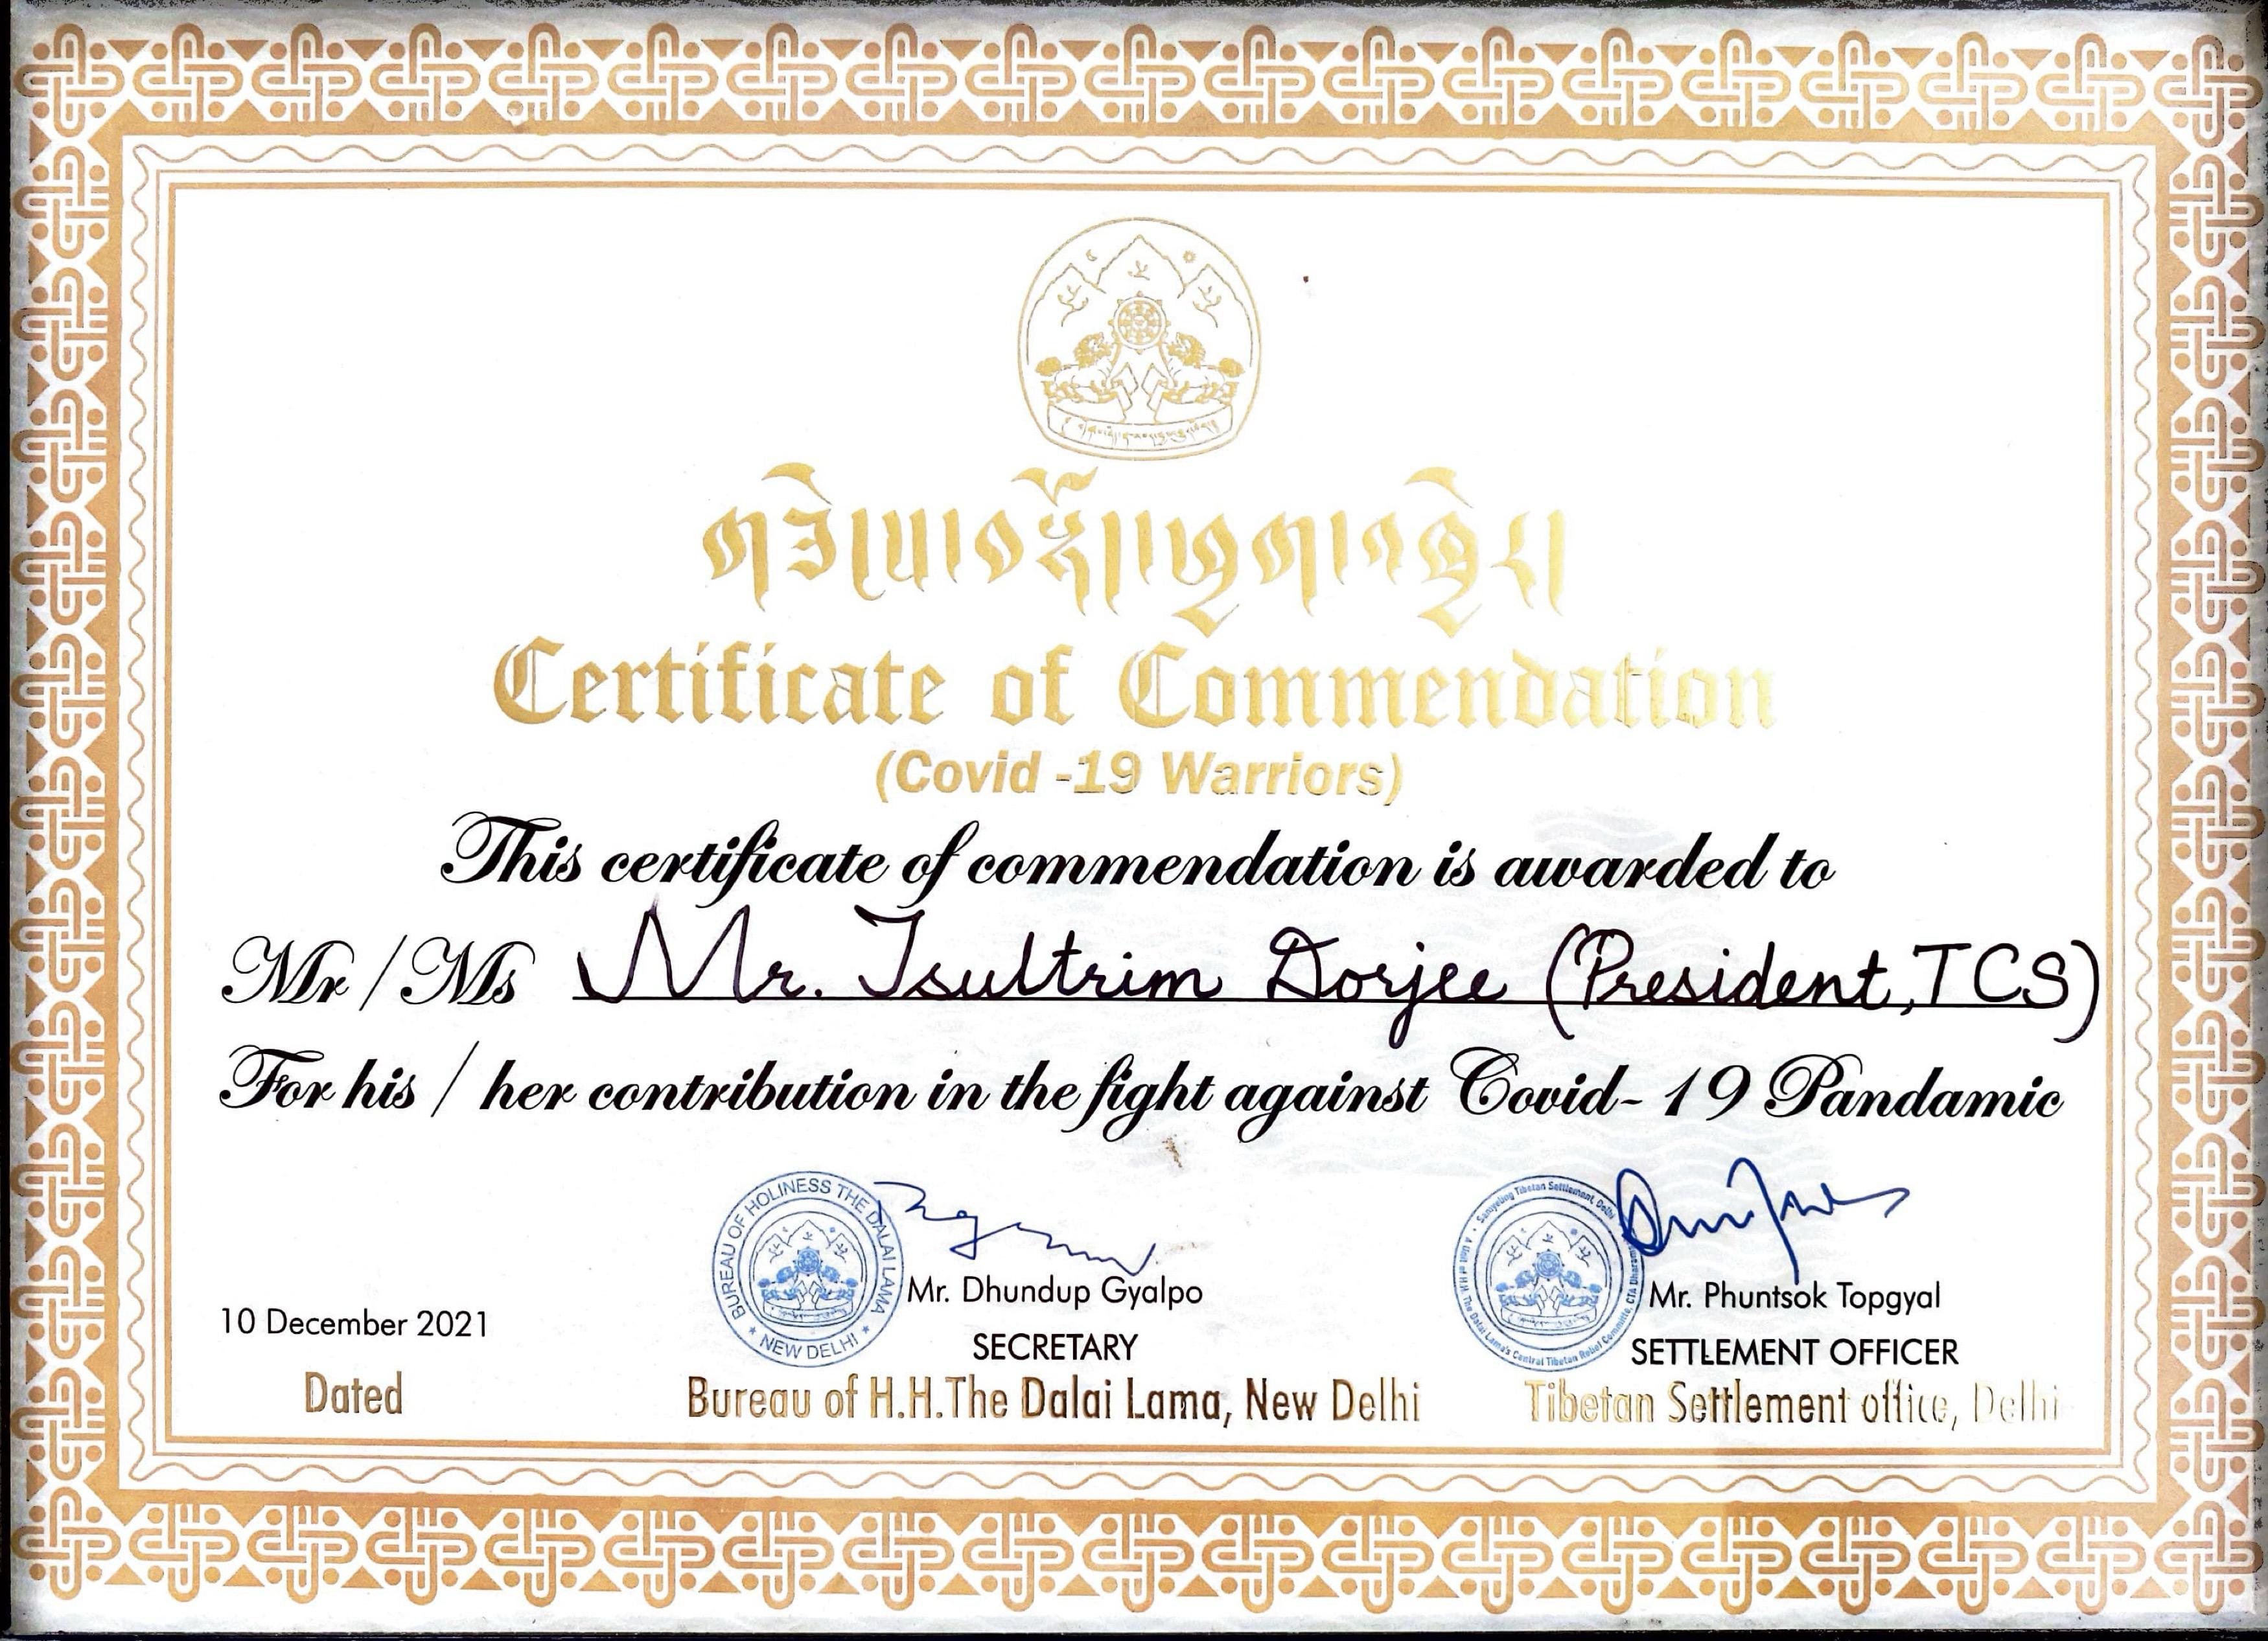 Certificate of Commendation
(Covid -19 Warriors)
This certificate of commendation is awarded to
Mr / Ms Mr. Tsultrim Dorjee (President, TCS)
For his / her contribution in the fight against Covid- 19 Pandamic
BUREAU OF HOLINESS THE DALAI LAMA
* NEW DELHI *
Mr. Dhundup Gyalpo
SECRETARY
Bureau of H.H.The Dalai Lama, New Delhi
Samyeling Tibetan Settlement, Delhi
Mr. Phuntsok Topgyal
SETTLEMENT OFFICER
Tibetan Settlement office, Delhi
10 December 2021
Dated